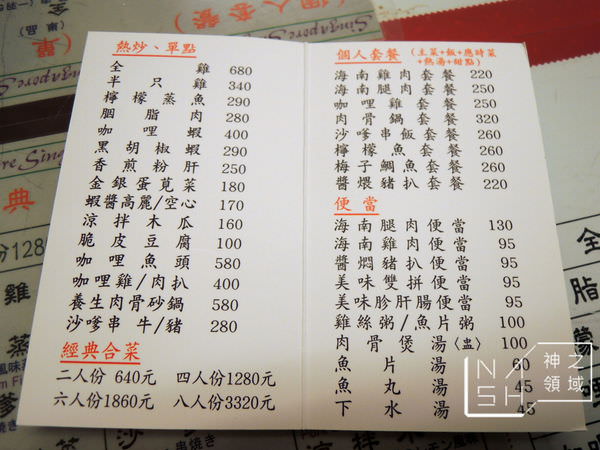 熱炒、單點
全雞 680
半只雞 340
檸檬蒸魚 290
胭脂肉 280
咖哩蝦 400
黑胡椒蝦 290
香煎粉肝 250
金銀蛋莧菜 180
蝦醬高麗/空心 170
涼拌木瓜 160
脆皮豆腐 100
咖哩魚頭 580
咖哩雞/肉扒 400
養生肉骨砂鍋 580
沙嗲串 牛/豬 280
經典合菜
二人份 640元 四人份1280元
六人份1860元 八人份3320元
個人套餐 (主菜+飯+應時菜
+熱湯+甜點)
海南雞肉套餐 220
海南腿肉套餐 250
咖哩雞套餐 250
肉骨鍋套餐 320
沙嗲串飯套餐 260
檸檬魚套餐 260
梅子鯛魚套餐 260
醬煨豬扒套餐 220
便當
海南腿肉便當 130
海南雞肉便當 95
醬燜豬扒便當 95
美味雙拼便當 95
美味胗肝腸便當 95
雞絲粥/魚片粥 100
肉骨煲湯〈盅〉 100
魚片湯 60
魚丸湯 45
下水湯 45
NASH 神之領域